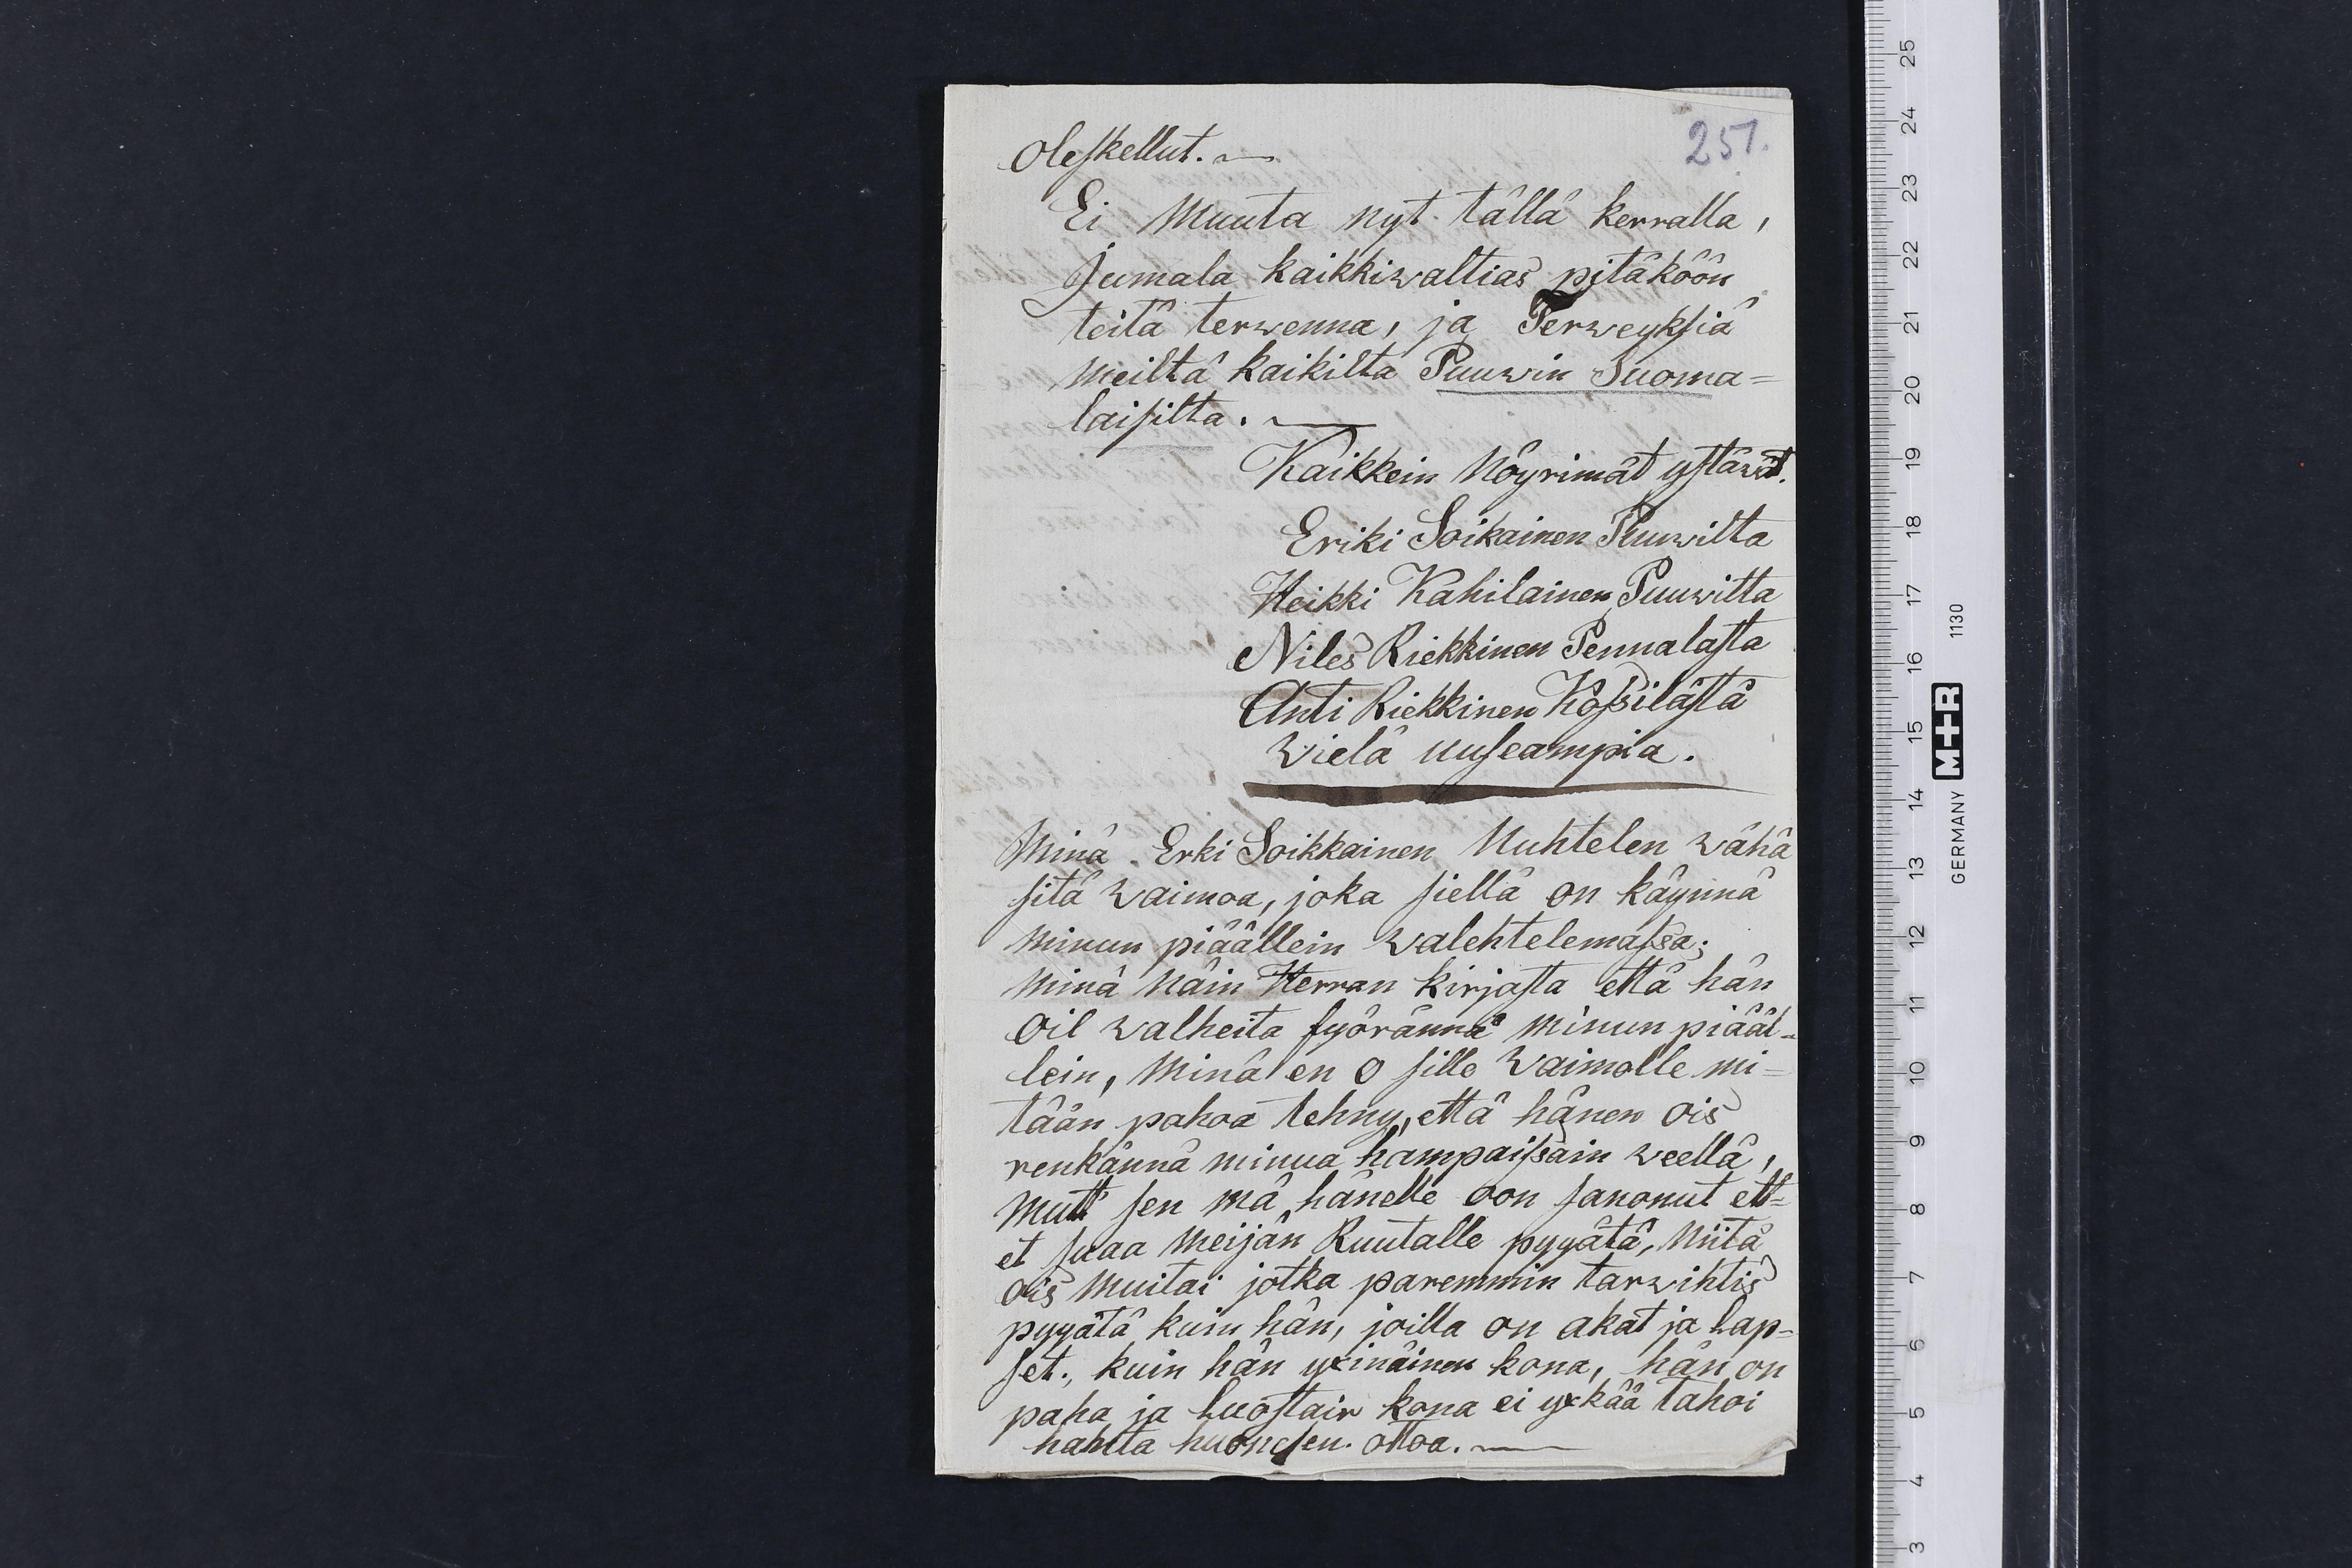 251.
oleskellut. —
Ei Muuta nyt tällä kerralla,
Jumala kaikkiwaltias pitäköön
teitä terwenna, ja Terweyksiä
meiltä kaikilta Puuwin Suoma=
laisilta. —
Kaikkein Nöyrimät ystäwät.
Eriki Soikainen Puuwilta
Heikki Kahilainen Puuwilta
Niles Riekkinen Pennalasta
Anti Riekkinen Kössilästä
Wielä uuseampia.
Minä Erki Soikkainen Nuhtelen wähä
sitä waimoa, joka siellä on käynnä
minun piäällein walehtelemassa;
minä näin Herran kirjasta että hän
oil walheita syörännä minun piääl=
lein, Minä en o sille Waimolle mi=
tään pahoa tehny, että hänen ois
renkännä minua hampaissain weellä,
Mutt sen mä hänelle oon sanonut ett=
et suaa meijän Ruutalle pyyätä, Niitä
ois Muitai jotka paremmin tarwihtis
pyyätä kuin hän, joilla on akat ja Lap=
set., kuin hän yxinäinen kona, hän on
paha ja Luostair kona ei yxkää tahoi
hänttä huonesen ottoa. —
25
24
23
22
21
20
19
18
17
16
15
14
13
12
11
10
9
8
7
6
5
4
3
1130
M+R
GERMANY